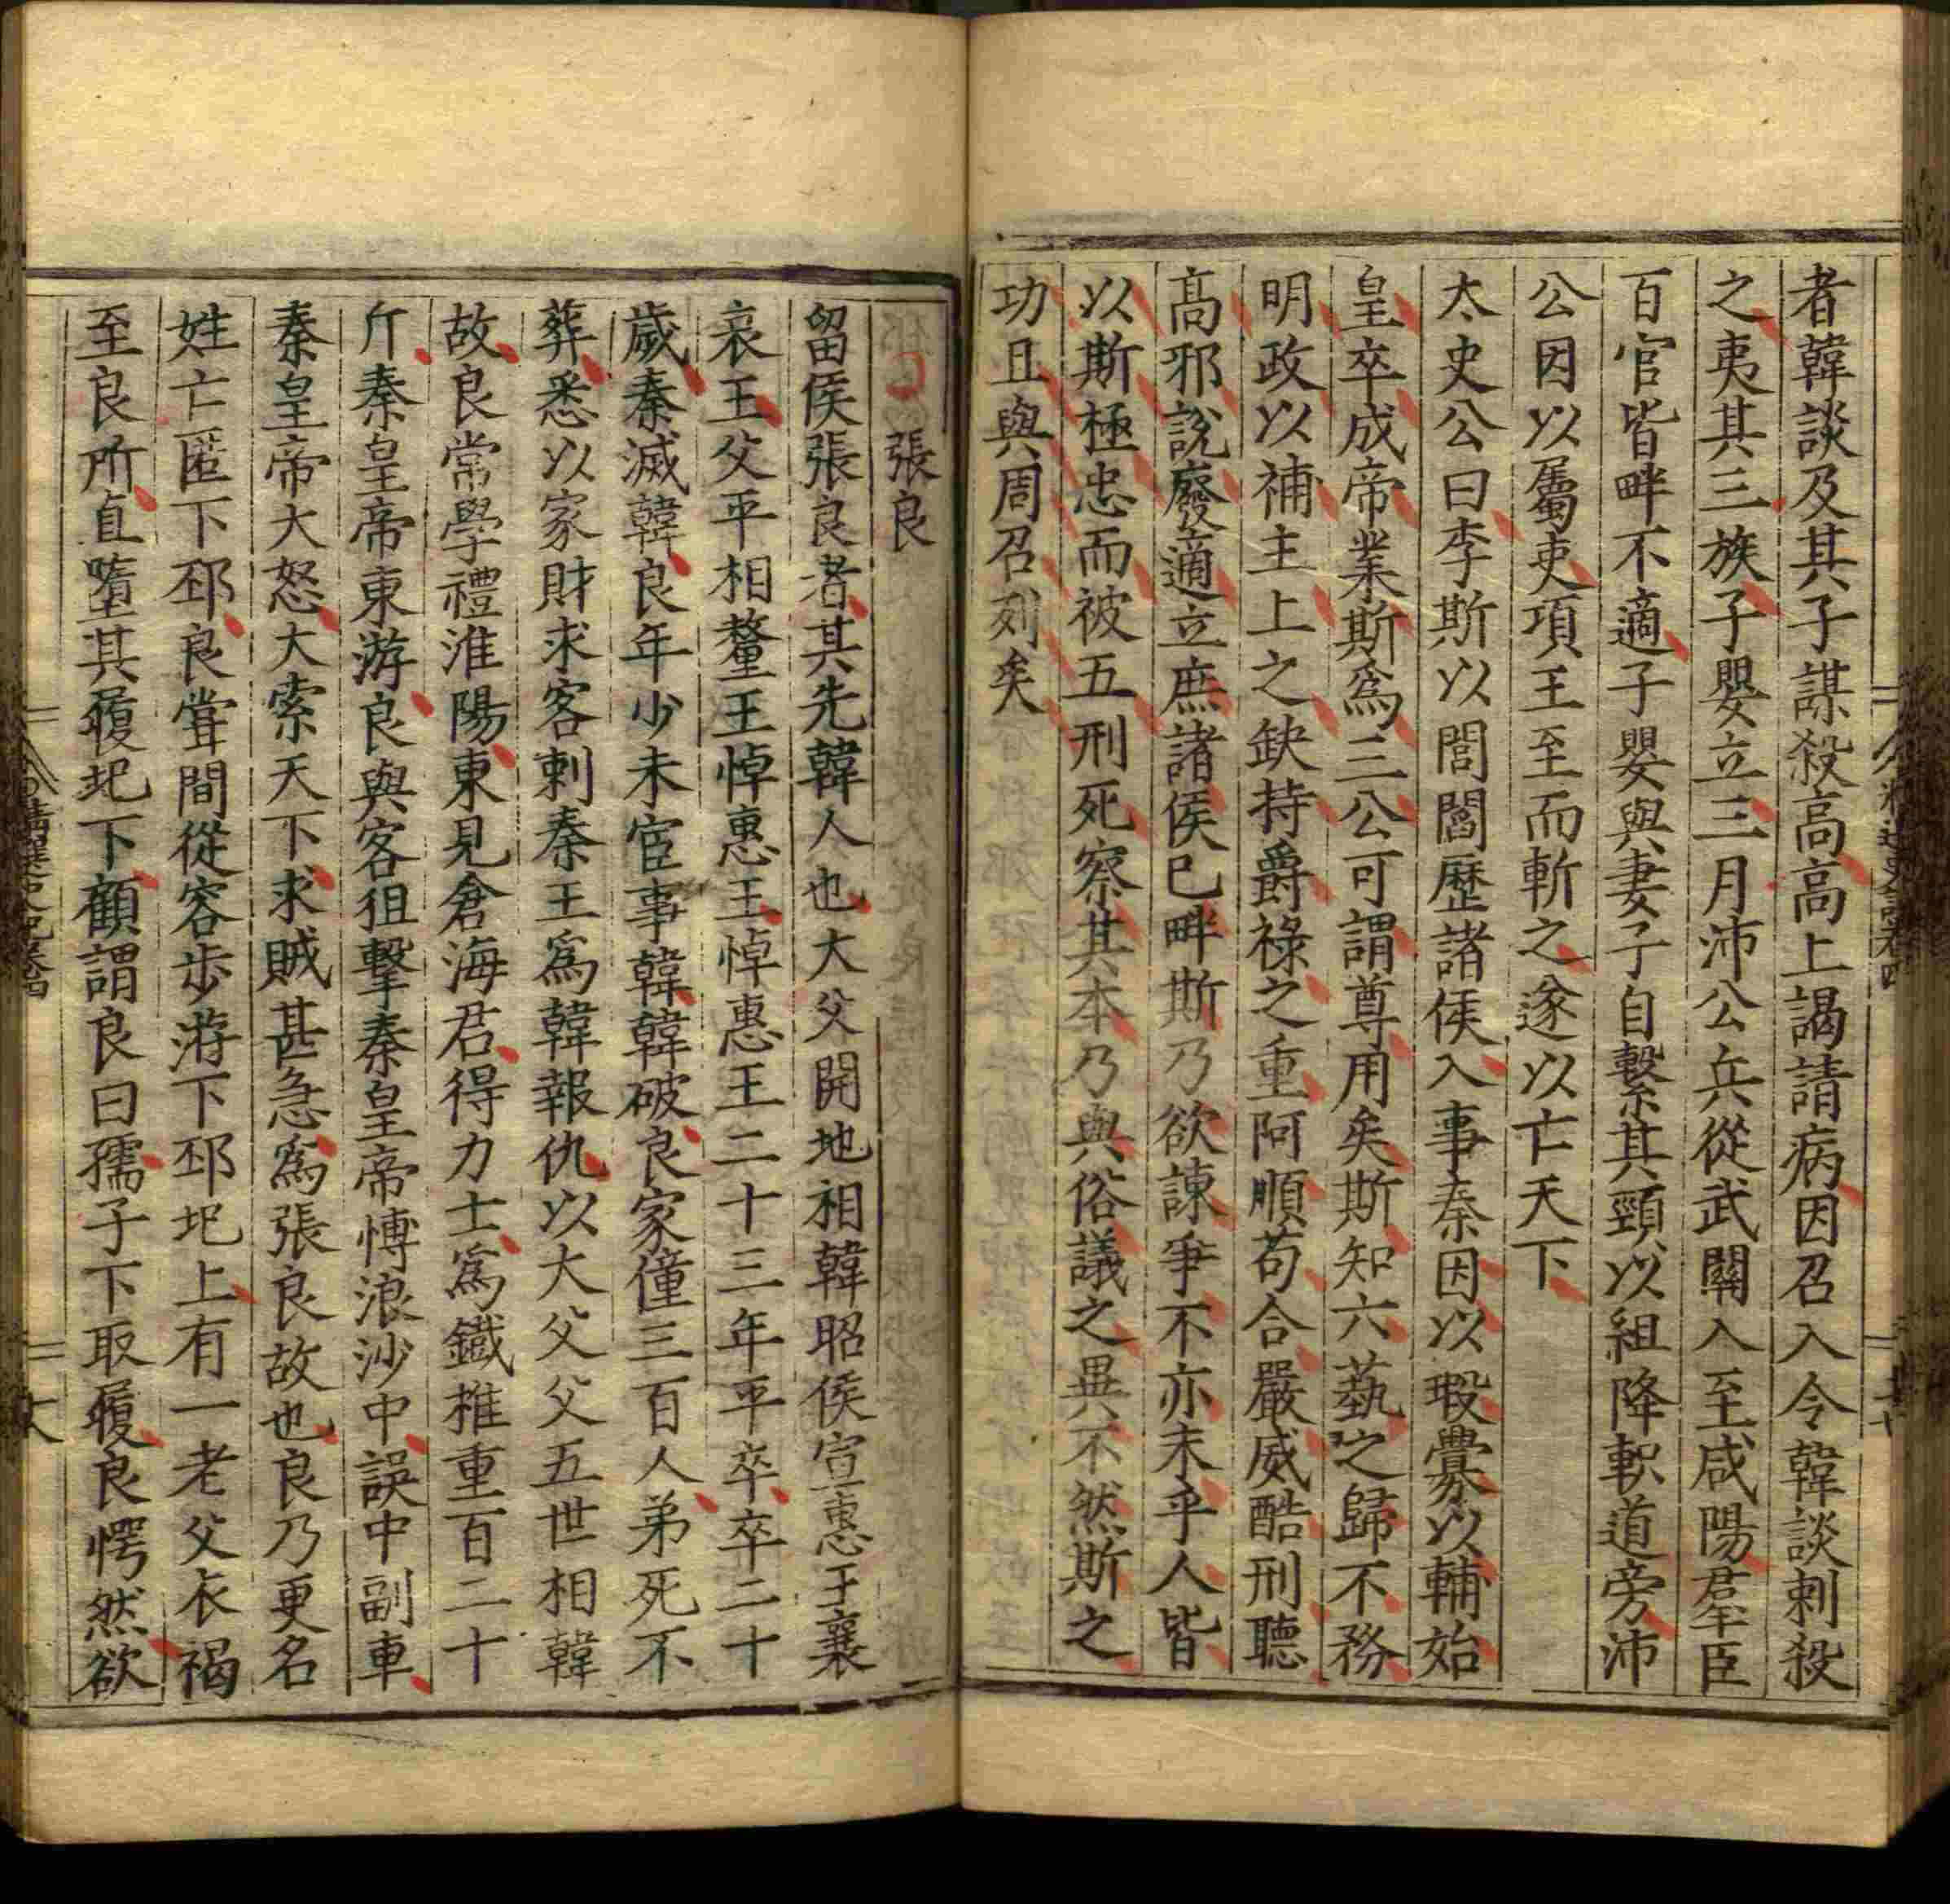 者韓談及其子謀殺高高上謁請病因召入令韓談刺殺
之夷其三族子嬰立三月沛公兵從武關入至咸陽羣臣
百官皆畔不適子嬰與妻子自繫其頸以組降軹道旁沛
公因以屬吏項王至而斬之遂以亡天下
太史公曰李斯以閭閻歷諸侯入事秦因以瑕釁以輔始
皇卒成帝業斯爲三公可謂尊用矣斯知六藝之歸不務
明政以補主上之缺持爵祿之重阿順苟合嚴威酷刑聽
高邪說廢適立庶諸侯已畔斯乃欲諫爭不亦末乎人皆
以斯極忠而被五刑死察其本乃與俗議之異不然斯之
功且與周召列矣
張良
留侯張良者其先韓人也大父開地相韓昭侯宣惠王襄
哀王父平相釐王悼惠王悼惠王二十三年平卒卒二十
歲秦滅韓良年少未宦事韓韓破良家僮三百人弟死不
葬悉以家財求客刺秦王爲韓報仇以大父父五世相韓
故良常學禮淮陽東見倉海君得力士爲鐵椎重百二十
斤秦皇帝東游良與客狙擊秦皇帝博浪沙中誤中副車
秦皇帝大怒大索天下求賊甚急爲張良故也良乃更名
姓亡匿下邳良甞間從容步游下邳圯上有一老父衣褐
至良所直墮其履圯下顧謂良曰孺子下取履良愕然欲